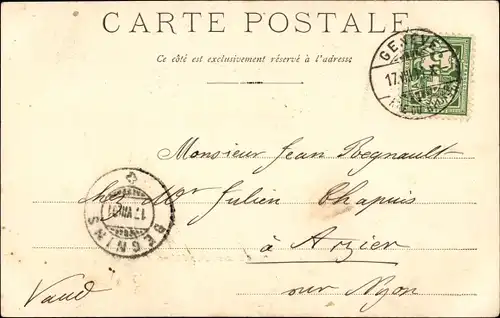 CARTE POSTALE
Ce côté est exclusivement réservé à l'adresse
GENÈVE
17.VII
Monsieur Jean Regnault
chez Mr Julien Chapuis
à Arzier
sur Nyon
Vaud
17.VII
BEGNINS